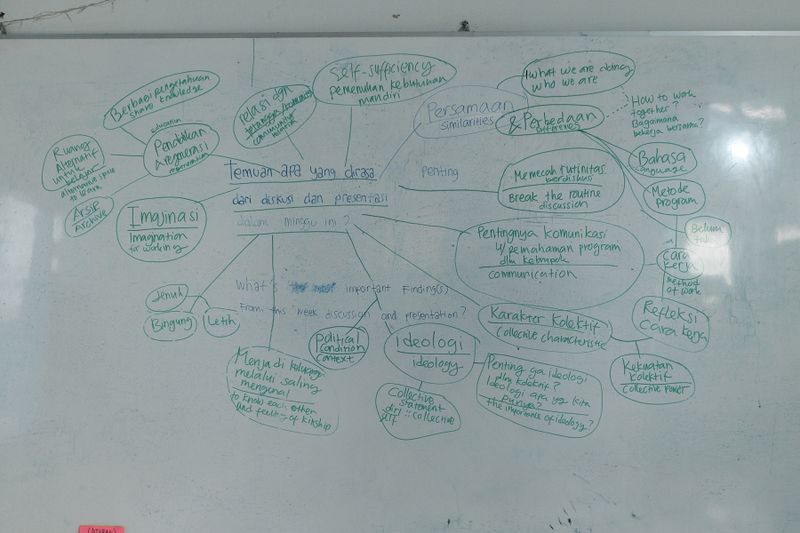 Berbagi pengetahuan
share knowledge
education
Pendidikan
& regenerasi
regeneration
Ruang
Alternatif
untuk
belajar
alternative space
to learn
Arsip
Archive
Imajinasi
Imagination
for working
relasi dgn
Self-sufficiency
pemenuhan kebutuhan
mandiri
Persamaan
similarities
& Perbedaan
What we are doing
who we are
How to work
together?
Bagaimana
bekerja bersama?
Bahasa
language
Metode
program
Belum
Cara
kerja
method
of work
Refleksi
cara kerja
Temuan apa yang dirasa
penting
dari diskusi dan presentasi
dalam minggu ini?
Memecah rutinitas
berdiskusi
Break the routine
discussion
Pentingnya komunikasi
u/ pemahaman program
dlm kelompok
communication
What's
important Finding(s)
From this week discussion and presentation?
Jenuh
Bingung
Letih
Menjadi keluarga
melalui saling
mengenal
to know each other
and feeling of kinship
Political
condition
context
Ideologi
ideology
Collective
statement
diri :: collective
self
Penting ga ideologi
dlm kolektif?
Ideologi apa yg kita
punya?
the importance of ideology?
Karakter kolektif
Collective characteristic
Kekuatan
kolektif
collective power